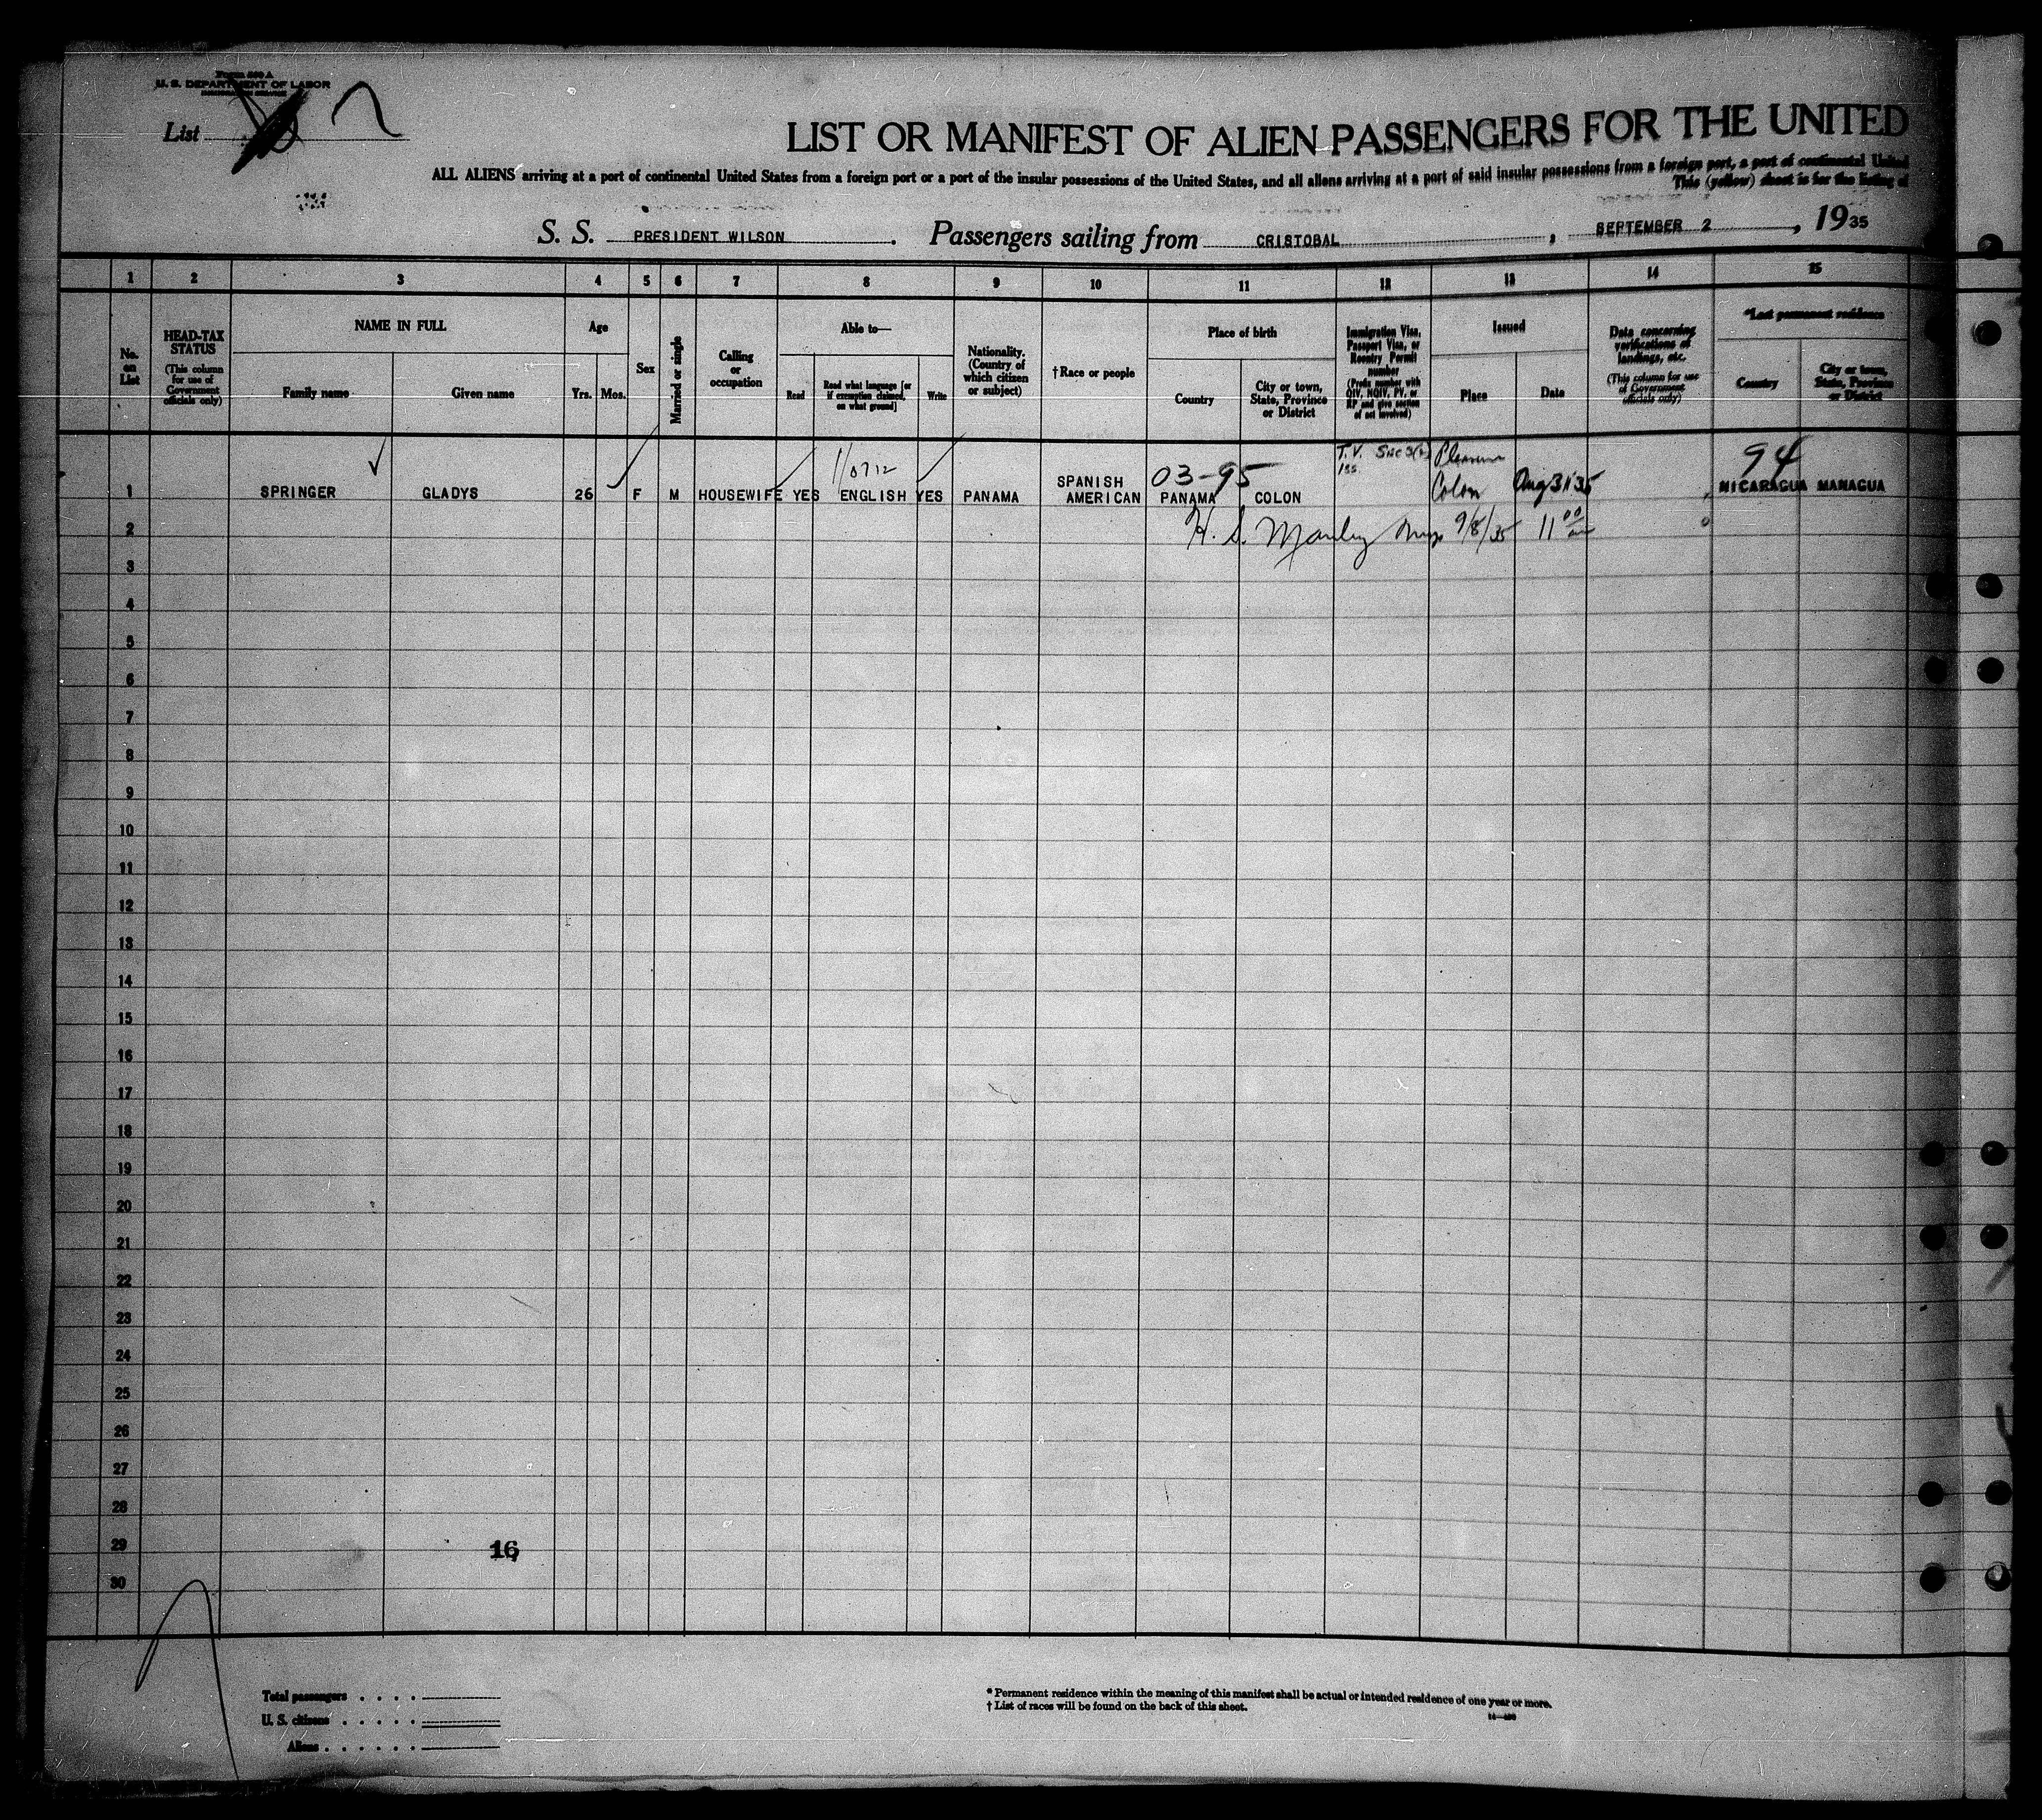 Form 500 A
U. S. DEPARTMENT OF LABOR
IMMIGRATION SERVICE
List
LIST OR MANIFEST OF ALIEN PASSENGERS FOR THE UNITED
ALL ALIENS arriving at a port of continental United States from a foreign port or a port of the insular possessions of the United States, and all aliens arriving at a port of said insular possessions from a foreign port, a port of continental United
This (yellow) sheet is for the listing of
S. S. PRESIDENT WILSON. Passengers sailing from CRISTOBAL, SEPTEMBER 2, 1935
1 2 3 4 5 6 7 8 9 10 11 12 13 14 15
No. on List
HEAD-TAX STATUS
(This column for use of Government officials only)
NAME IN FULL
Family name
Given name
Age
Yrs.
Mos.
Sex
Married or single
Calling or occupation
Able to—
Read
Read what language [or if exemption claimed, on what ground]
Write
Nationality. (Country of which citizen or subject)
† Race or people
Place of birth
Country
City or town, State, Province or District
Immigration Visa, Passport Visa, or Reentry Permit number
(Prefix number with QIV, NQIV, PV, or RP and give section of act involved)
Issued
Place
Date
Data concerning verifications of landings, etc.
(This column for use of Government officials only)
*Last permanent residence
Country
City or town, State, Province or District
1 SPRINGER GLADYS 26 F M HOUSEWIFE YES ENGLISH YES PANAMA SPANISH AMERICAN 03-95 PANAMA COLON T.V. Sec 3(2) Pleasure Colon Aug 31 35 94 NICARAGUA MANAGUA
2 H. S. Manley 9/8/35 11 00
3
4
5
6
7
8
9
10
11
12
13
14
15
16
17
18
19
20
21
22
23
24
25
26
27
28
29
16
30
Total passengers . . . .
U. S. citizens . . . . .
Aliens . . . . . .
* Permanent residence within the meaning of this manifest shall be actual or intended residence of one year or more.
† List of races will be found on the back of this sheet.